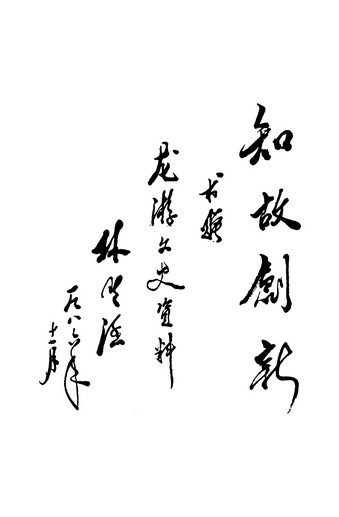 知故創新
书赠
龙游文史资料
林
一九八六年
十一月